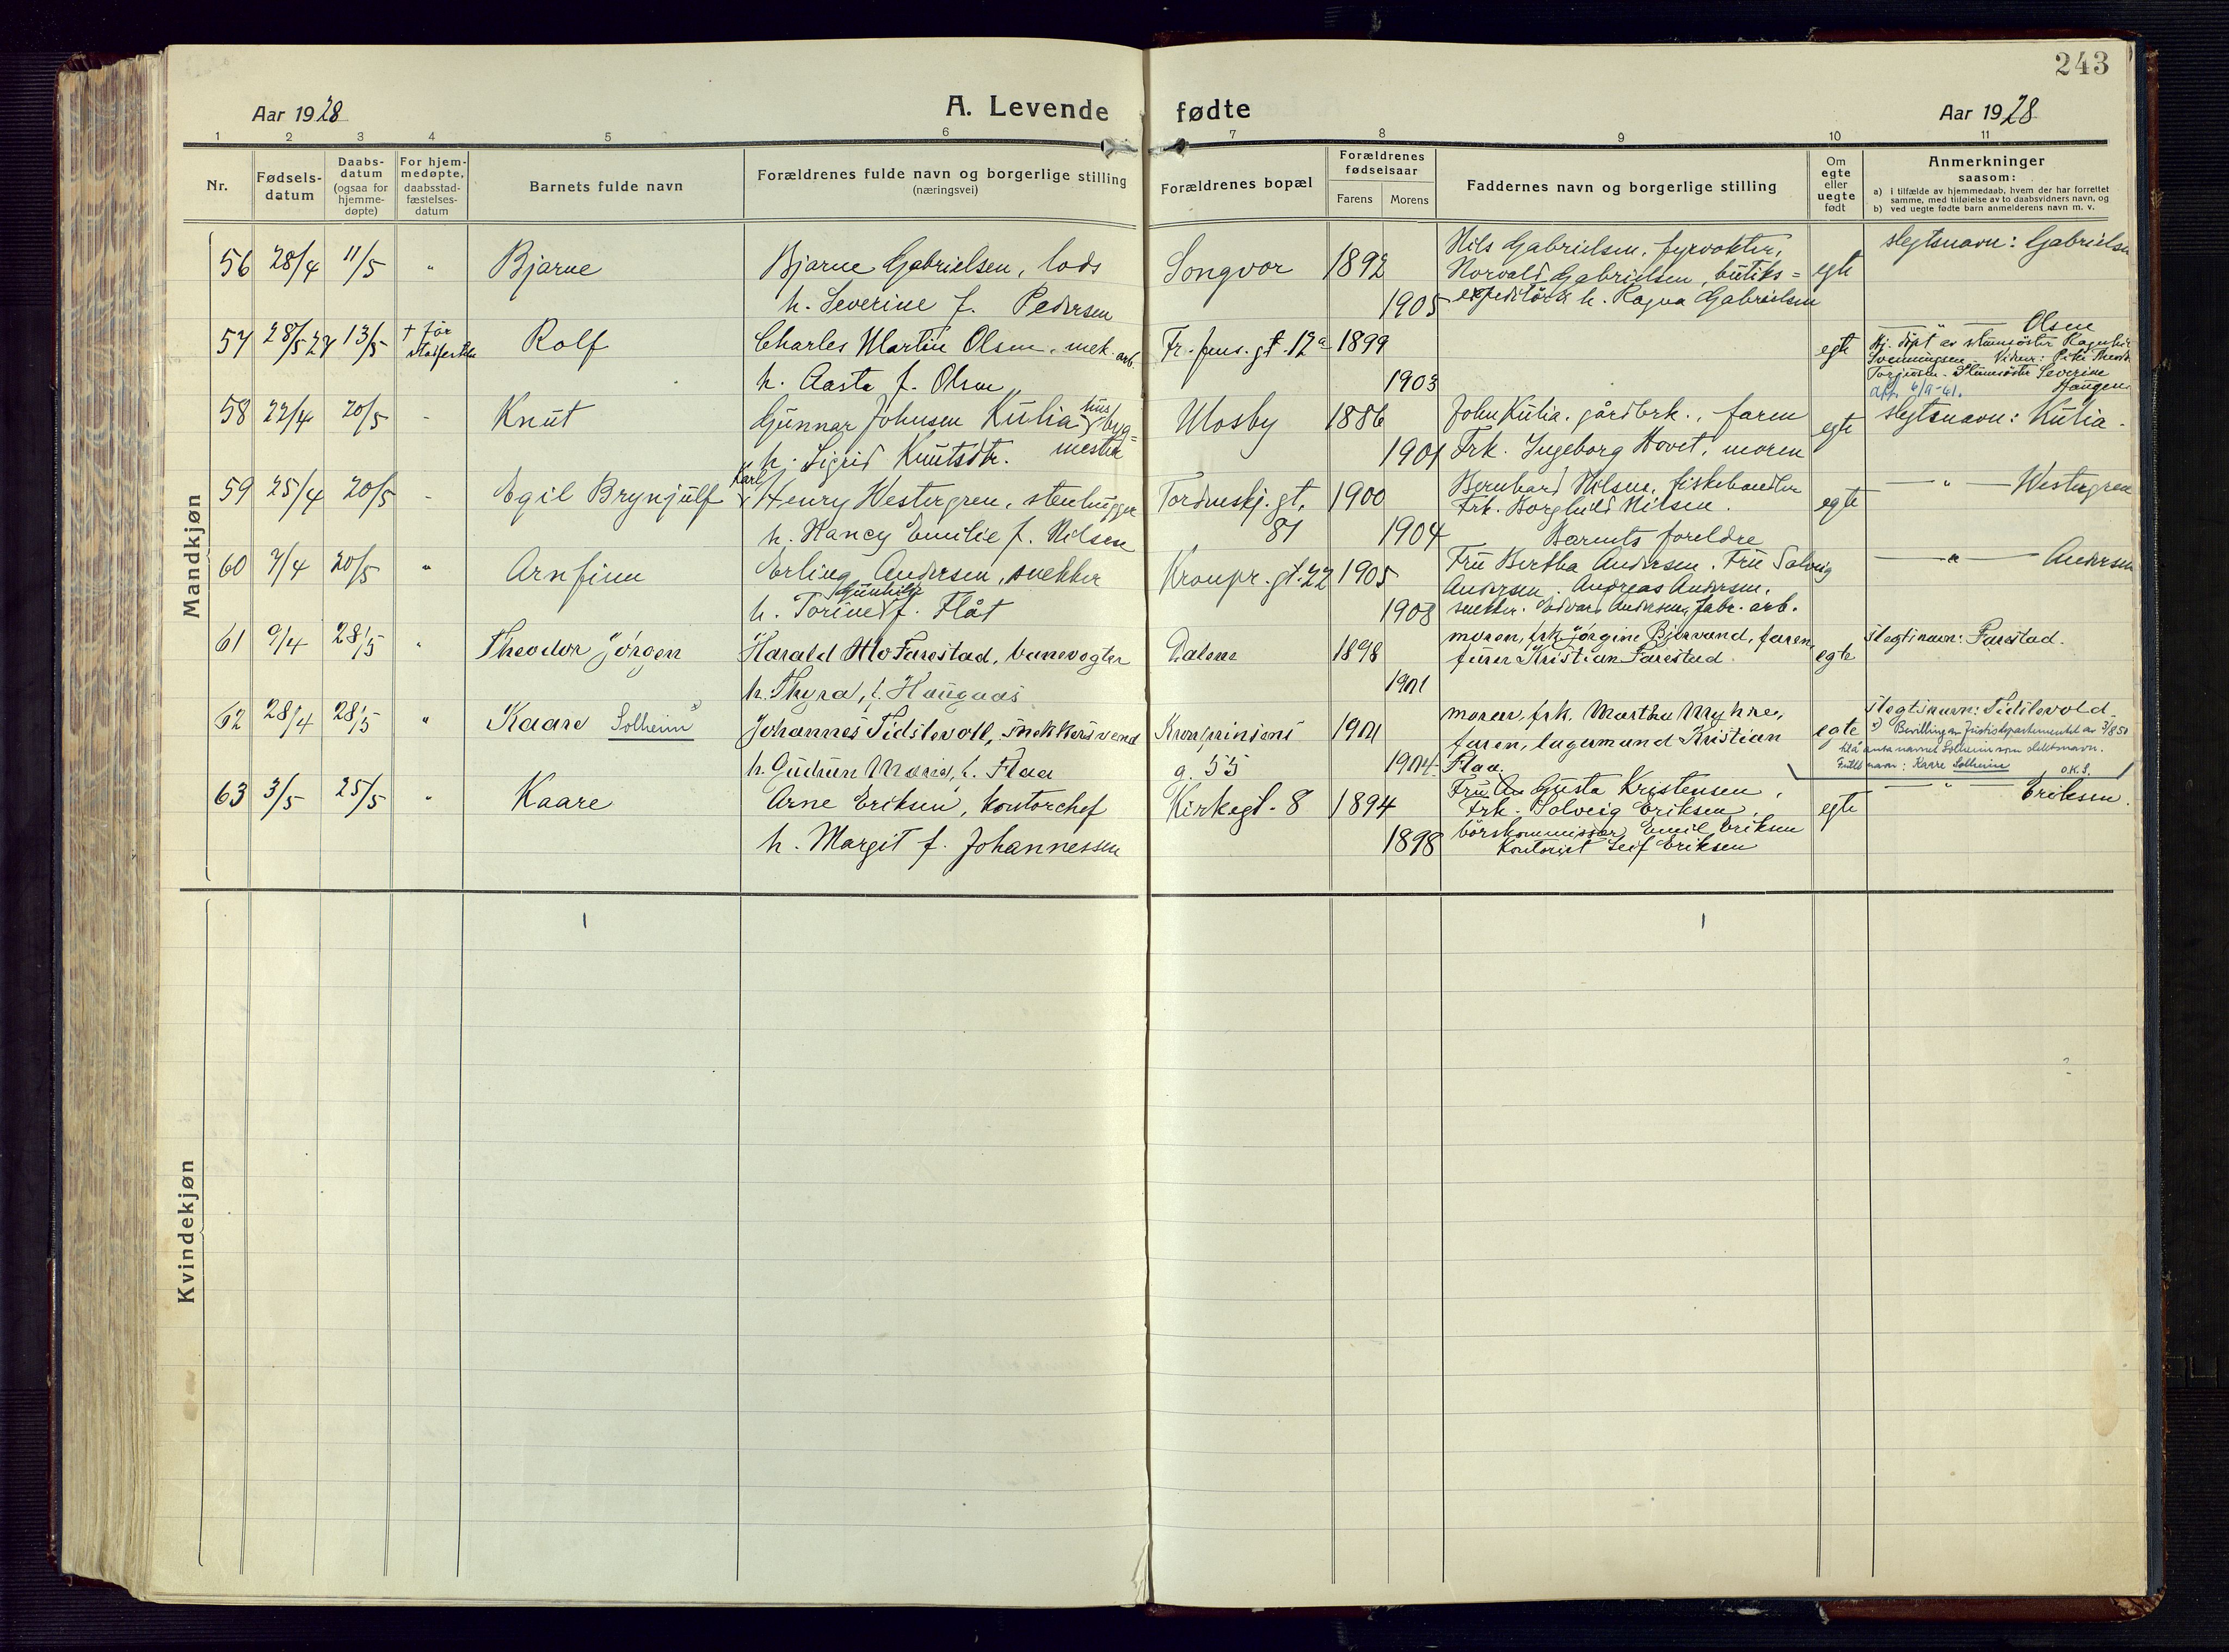 243
Aar 1928
A. Levende fødte
Aar 1928
1 2 3 4 5 6 7 8 9 10 11
Nr.
Fødsels-
datum
Daabs-
datum
(ogsaa for
hjemme-
døpte)
For hjem-
medøpte,
daabsstad-
fæstelses-
datum
Barnets fulde navn
Forældrenes fulde navn og borgerlige stilling
(næringsvei)
Forældrenes bopæl
Forældrenes
fødselsaar
Farens Morens
Faddernes navn og borgerlige stilling
Om
egte
eller
uegte
født
Anmerkninger
saasom:
a) i tilfælde av hjemmedaab, hvem der har forrettet
samme, med tilføielse av to daabsvidners navn, og
b) ved uegte fødte barn anmelderens navn m. v.
Mandkjøn
56 28/4 11/5 " Bjarne
Bjarne Gabrielsen, lods
h. Severine f. Pedersen
Songvor 1892
1905
Nils Gabrielsen, fyrvokter,
Norvald Gabrielsen, butiks=
expeditør h. Ragna Gabrielsen
egte
slegtsnavn: Gabrielsen
57 28/5 27 13/5 † før Rolf
Charles Martin Olsen, mek. arb.
h. Aasta f. Olsen
Fr. Jens. gt. 12a 1899
1903
egte
— " — Olsen
Hj. døpt av Ragnhild
Svenningsen. Vidner:
Severine
Haugen
58 22/4 20/5 - Knut
Gunnar Johnsen Kulia, hus byg=
mester
h. Sigrid Knutsdtr.
Mosby 1886
1901
John Kulia, gårdbrk., faren
Frk. Ingeborg Hovet, moren
egte
slegtsnavn: Kulia.
59 25/4 20/5 - Egil Brynjulf
Karl
Henry Westergren, stenhugger
h. Nancy Emilie f. Nilsen
Tordenskj. gt.
81
1900
1904
Bernhard Nilsen, fiskehandler
Frk. Borghild Nilsen.
Barnets foreldre
egte
— " — Westergren
60 7/4 20/5 " Arnfinn
Erling Andersen, snekker
Gunhild
h. Torine f. Flåt
Kronpr. gt. 22 1905
1908
Fru Bertha Andersen. Fru Solveig
Andersen. Andreas Andersen,
snekker. Edvard Andersen, fabr. arb.
egte
— " — Andersen
61 9/4 28/5 " Theodor Jørgen
Harald Mo Farestad, banevogter
h. Thyra, f. Haugaas
Dalene 1898
1901
moren, frk. Jørgine Bjorvand, faren,
Kristian Farestad.
egte
Slegtsnavn: Farestad.
62 28/4 28/5 " Kaare Solheim x)
Johannes Tidslevold, snekkersvend
h. Gudrun Maria, f. Flaa
Kronprinsens
g. 55
1901
1904
moren, frk. Martha Myhre,
faren, lagermand Kristian
Flaa.
egte
Slegtsnavn: Tidslevold.
x) Bevilling av Justisdepartementet av 3/8 50
til å anta navnet Solheim som slektsnavn.
Fulle navn: Kaare Solheim
O.K.S.
63 3/5 25/5 " Kaare
Arne Eriksen, kontorchef
h. Margit f. Johannessen
Kirkegt. 8 1894
1898
Fru Gusta Kristensen,
Frk. Solveig Eriksen,
børskommissær Emil Eriksen
Kontorist Leif Eriksen
egte
— " — Eriksen.
Kvindekjøn